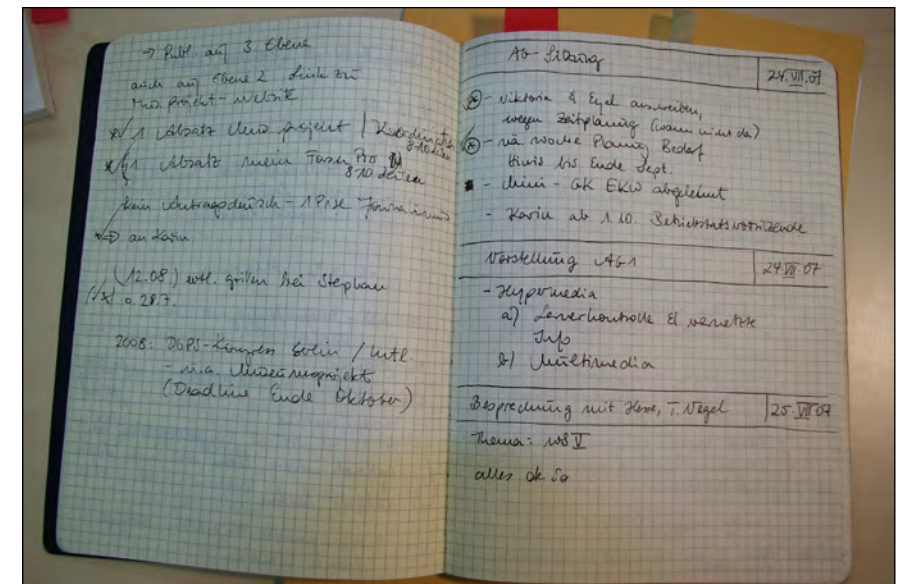 → Publ. auf 3. Ebene
auch auf Ebene 2 Link zu
Mus.projekt-Website
1 Absatz Mus.projekt |
8-10 Zeilen
1 Absatz mein Pro
8-10 Zeilen
kein - 1 Prise Journalismus
⇒ an Karin
(12.08.) evtl. grillen bei Stephan
o. 28.7.
2008: DGPS-Kongress Berlin /
- u.a. Museumsprojekt
(Deadline Ende Oktober)
AG-Sitzung 24.VII.07
- Viktoria & Eyal
wegen Zeitplanung (wann nicht da)
- nä. Woche Planung Bedarf
Hiwis bis Ende Sept.
- Mini-GK EKW abgelehnt
- Karin ab 1.10. Betriebsratsvorsitzende
Vorstellung AG1 24.VII.07
- Hypermedia
a) Lernerkontrolle & vernetzte
Info
b) Multimedia
Besprechung mit Hesse, T. Nagel 25.VII.07
Thema: WS V
alles ok so